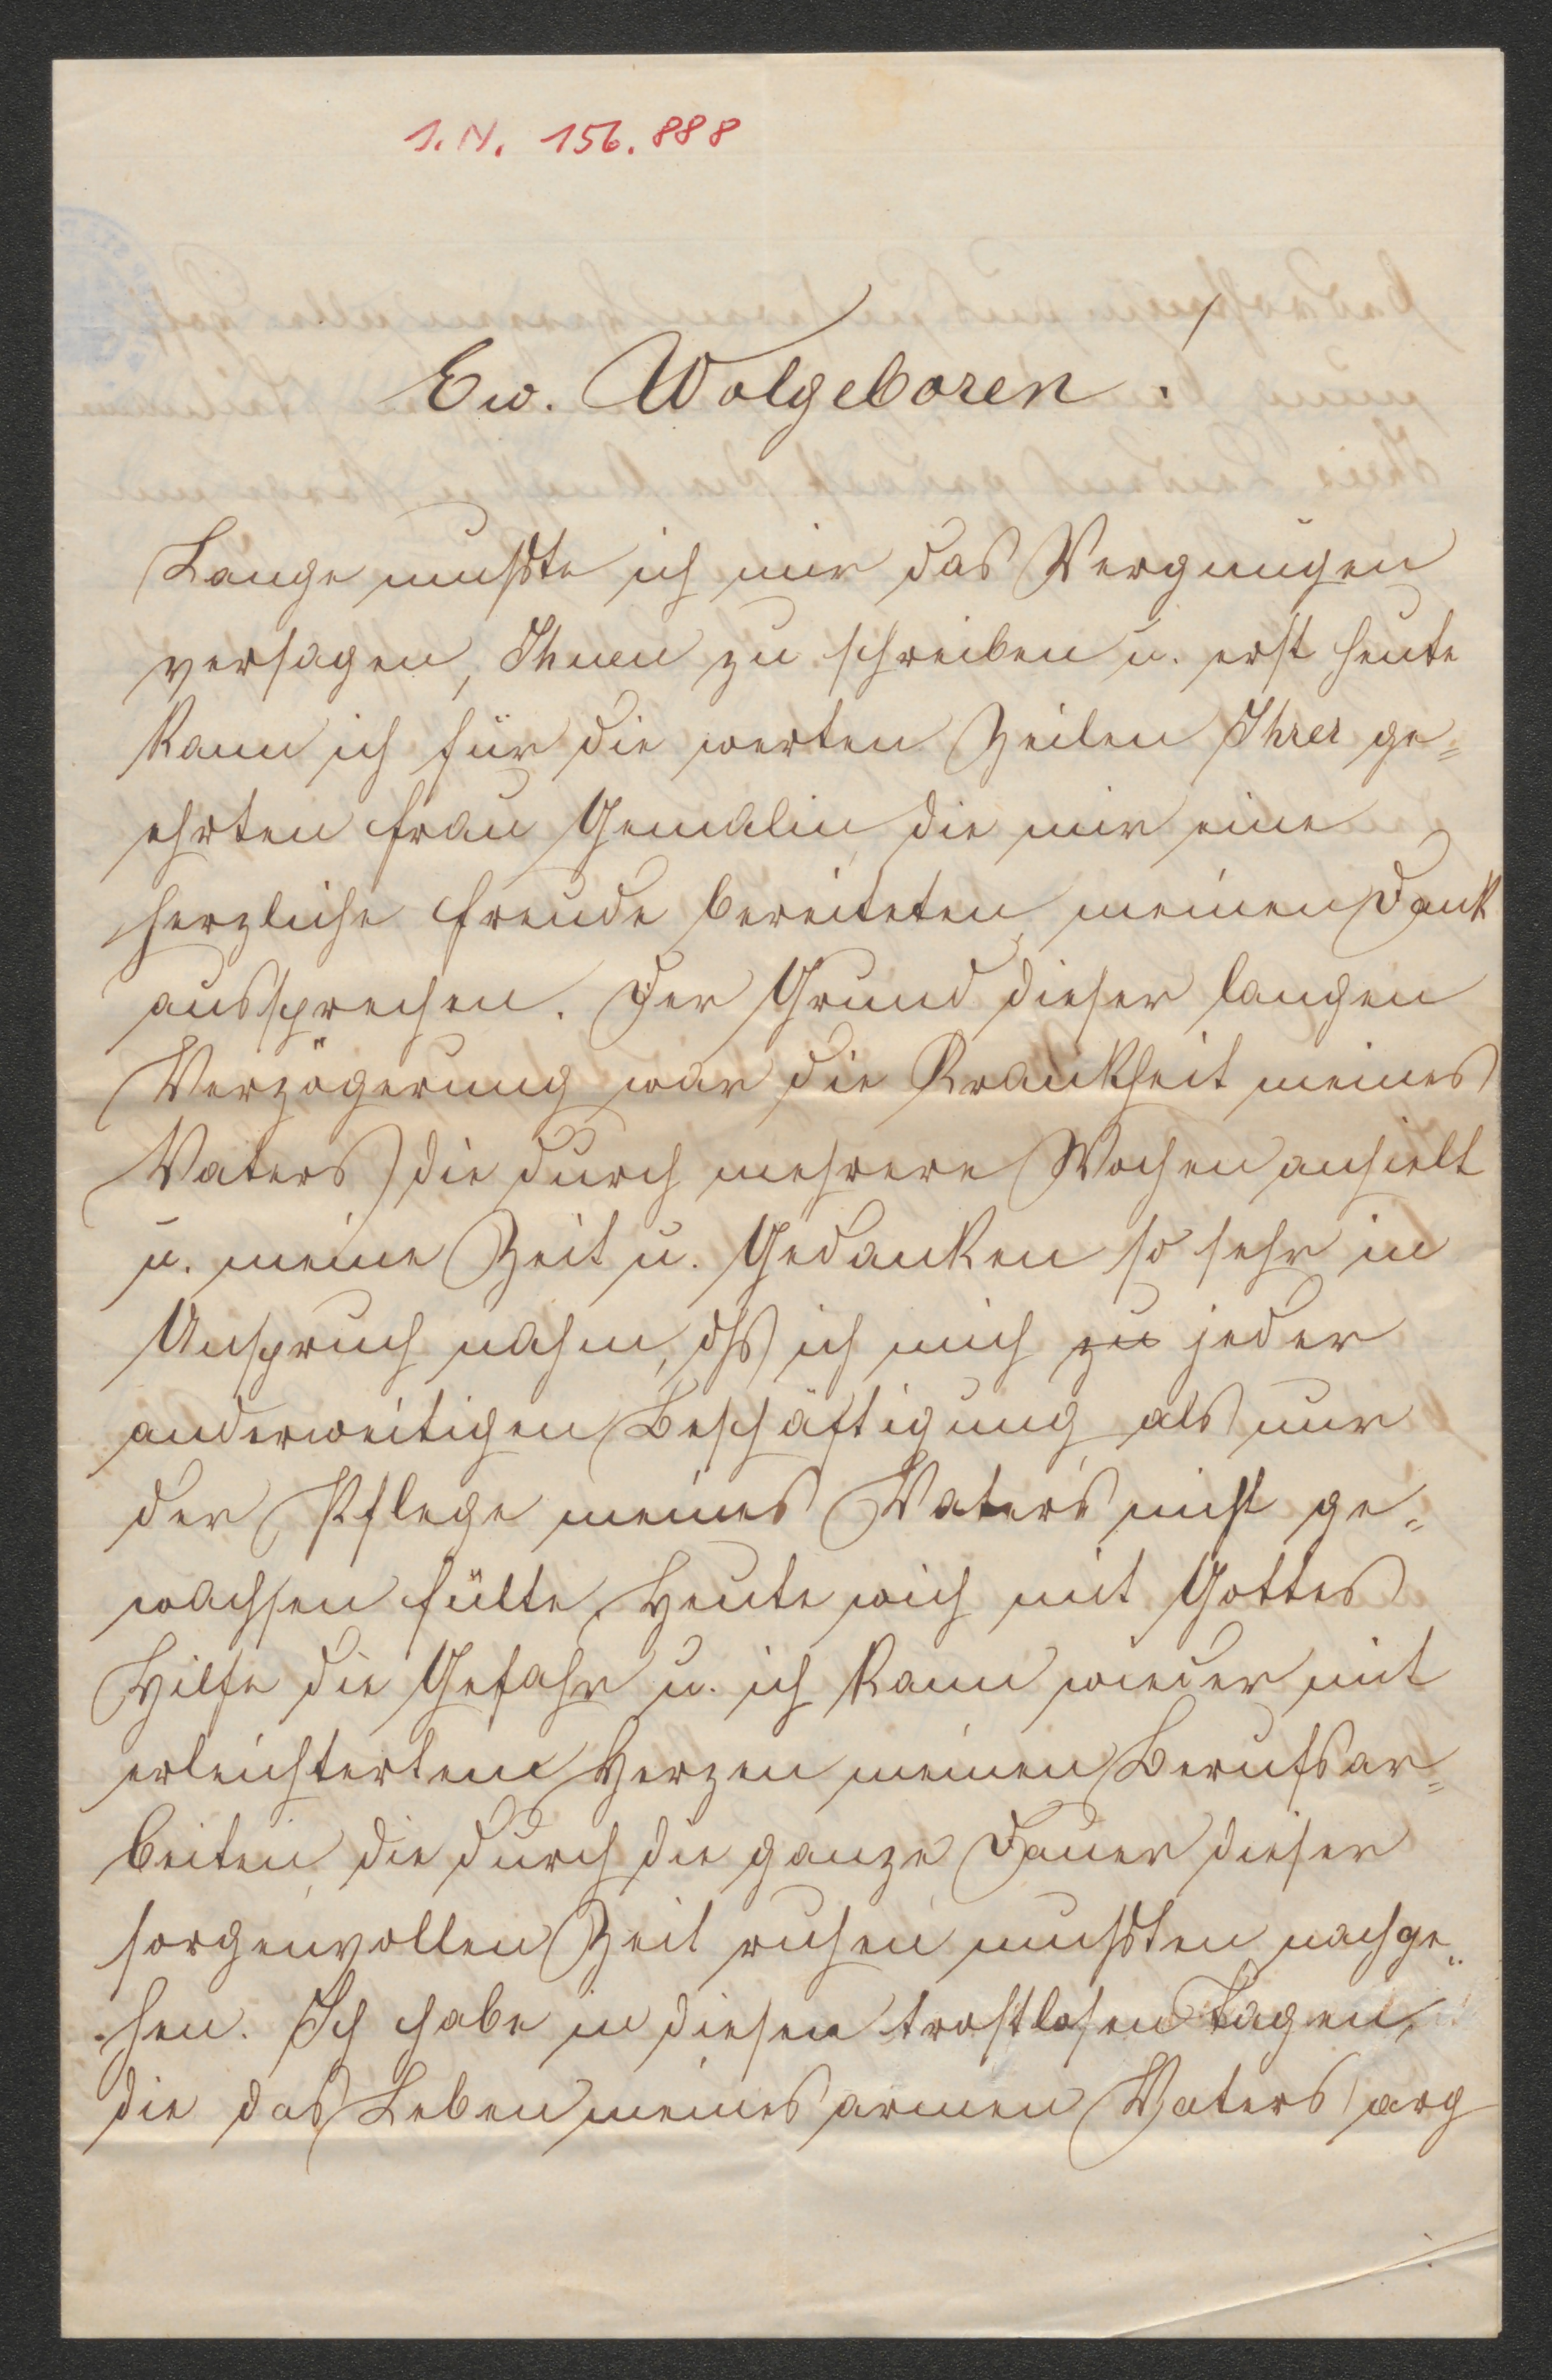 I.N. 156.888
Ew. Wolgeboren!
Lange mußte ich mir das Vergnügen
versagen, Ihnen zu schreiben u. erst heute
kann ich für die werten Zeilen Ihrer ge=
ehrten Frau Gemalin, die mir eine
herzliche Freude bereiteten, meinen Dank
aussprechen. Der Grund dieser langen
Verzögerung war die Krankheit meines
Vaters, die durch mehrere Wochen anhielt
u. meine Zeit u. Gedanken so sehr in
Anspruch nahm, dß ich mich zu jeder
anderweitigen Beschäftigung als nur
der Pflege meines Vaters nicht ge=
wachsen fülte. Heute wich mit Gottes
Hilfe die Gefahr u. ich kann wieder mit
erleichtertem Herzen meinen Berufsar=
beiten, die durch die ganze Dauer dieser
sorgenvollen Zeit ruhen mußten nachge=
hen. Ich habe in diesen trostlosen Tagen,
die das Leben meines armen Vaters arg